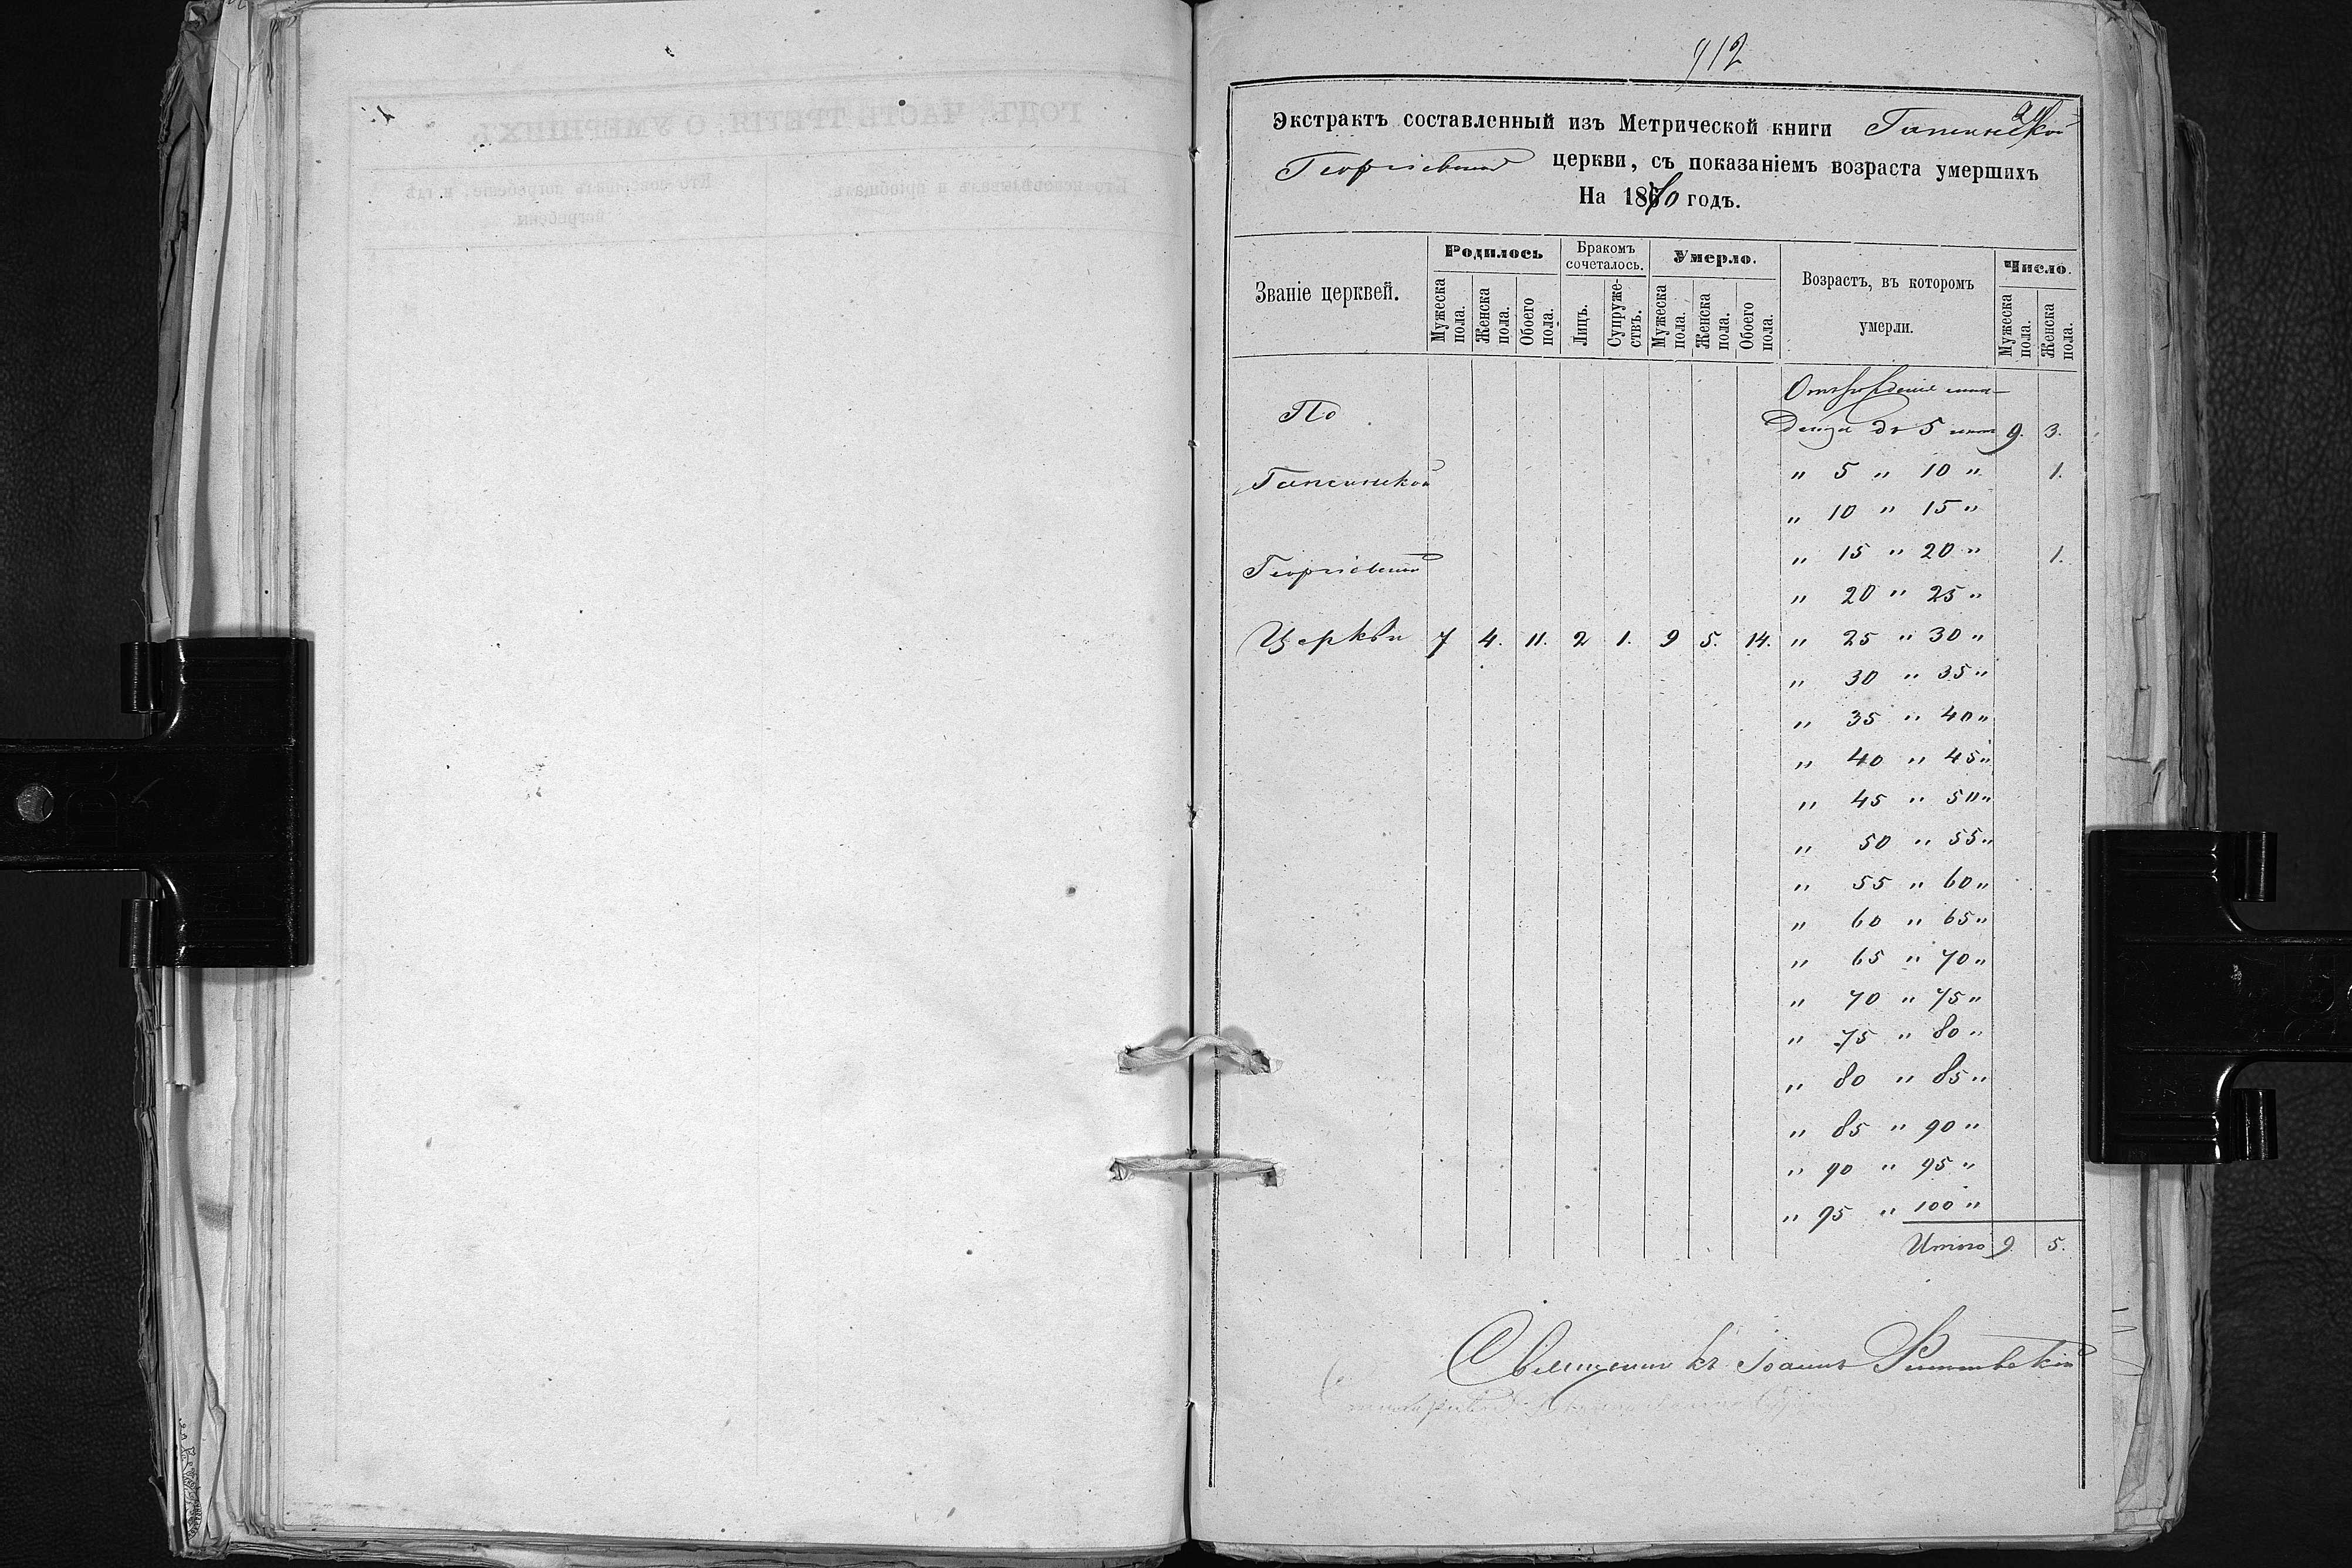 912
Экстрактъ составленный изъ Метрической книги
Георгіевской церкви, съ показаніемъ возраста умершихъ
На 1870 годъ.
Званіе церквей.
Родилось
Бракомъ сочеталось.
Умерло.
Возрастъ, въ которомъ умерли.
Число.
Мужеска пола.
Женска пола.
Обоего пола.
Лицъ.
Супружествъ.
Мужеска пола.
Женска пола.
Обоего пола.
Мужеска пола.
Женска пола.
По
Георгіевской
Церкви 7 4. 11. 2 1. 9 5. 14.
Отъ рожденія мла-
денца до 5 лѣтъ 9. 3.
" 5 " 10 " 1.
" 10 " 15 "
" 15 " 20 " 1.
" 20 " 25 "
" 25 " 30 "
" 30 " 35 "
" 35 " 40 "
" 40 " 45 "
" 45 " 50 "
" 50 " 55 "
" 55 " 60 "
" 60 " 65 "
" 65 " 70 "
" 70 " 75 "
" 75 " 80 "
" 80 " 85 "
" 85 " 90 "
" 90 " 95 "
" 95 " 100 "
Итого 9 5.
Священникъ Іоаннъ